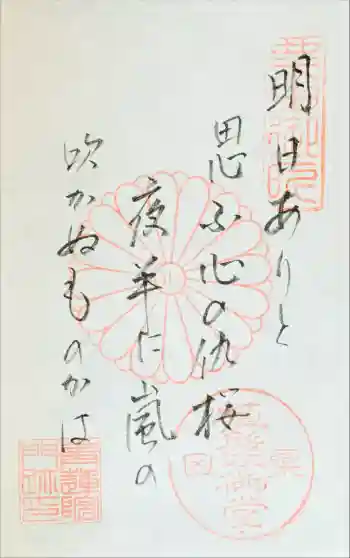 明日ありと
思ふ心の仇桜
夜半に嵐の
吹かぬものかは
聖護院
門跡